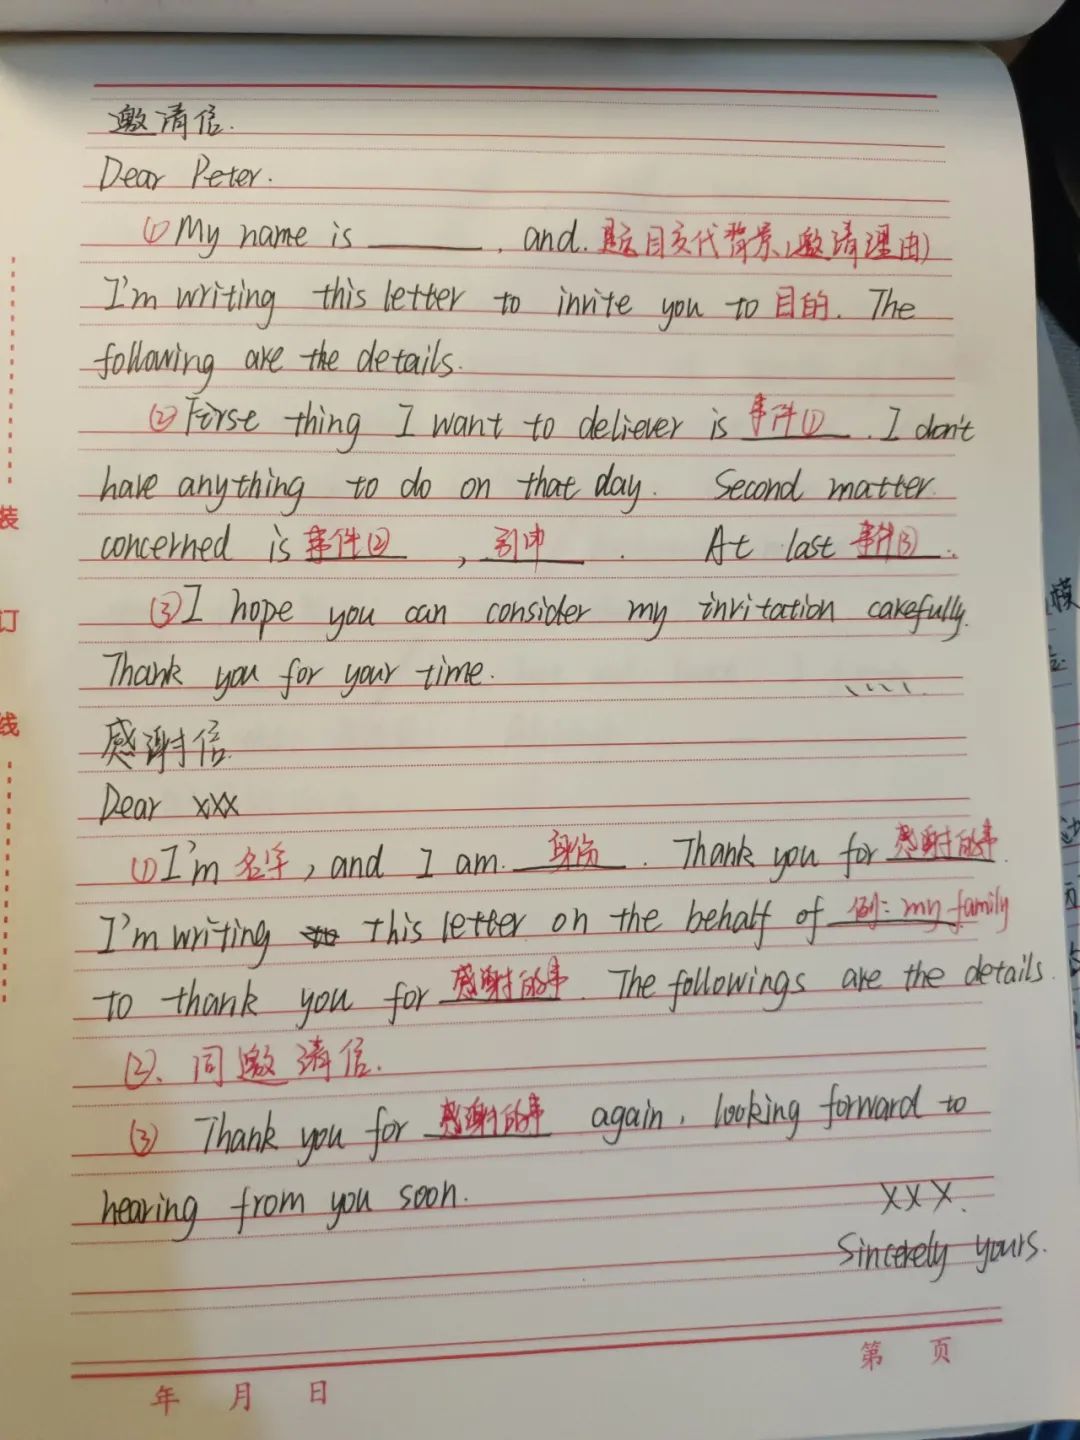 邀请信.
Dear Peter.
(1) My name is ______, and. 题目交代背景(邀请理由)
I'm writing this letter to invite you to 目的. The
following are the details.
(2) First thing I want to deliever is 事件(1). I don't
have anything to do on that day. Second matter
concerned is 事件(2), 引申. At last 事件(3).
(3) I hope you can consider my invitation carefully.
Thank you for your time.
感谢信.
Dear xXx
(1) I'm 名字, and I am. 身份. Thank you for 感谢的事.
I'm writing this letter on the behalf of 例: my family
to thank you for 感谢的事. The followings are the details.
(2)、同邀请信.
(3) Thank you for 感谢的事 again, looking forward to
hearing from you soon.
XXX.
Sincerely yours.
第 页
年 月 日
装
订
线
模